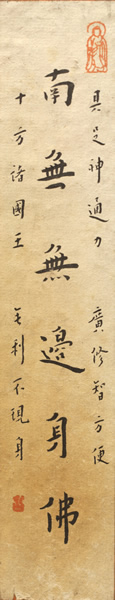 具足神通力 廣修智方便
南無無邊身佛
十方諸國土 無刹不現身